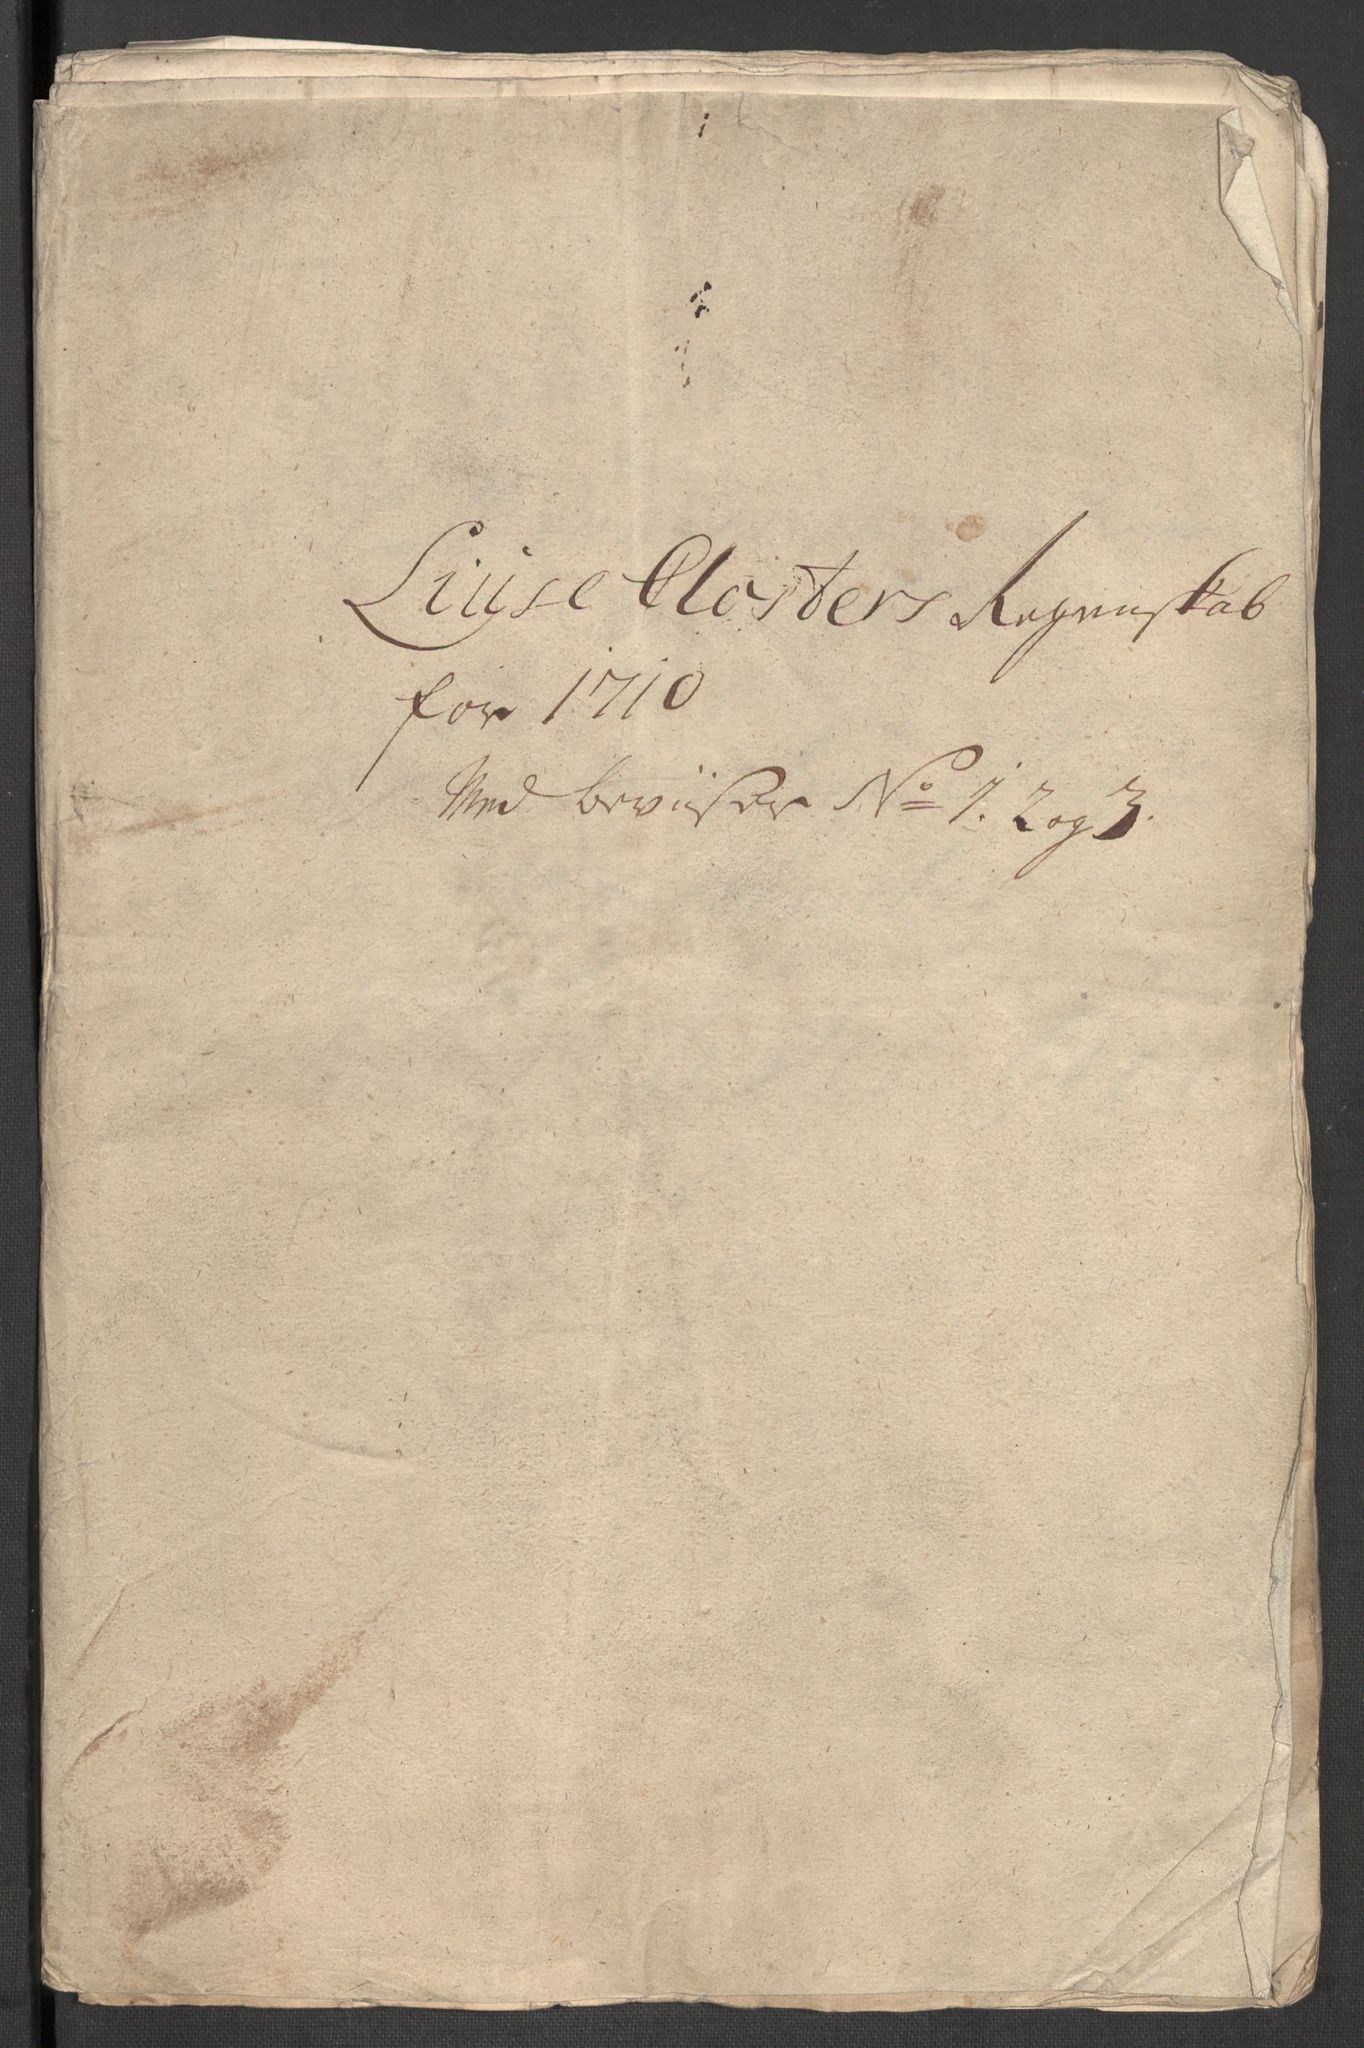 Liuse Closters Regenskab
for 1710
Med beviiser No 1. 2 og 3.